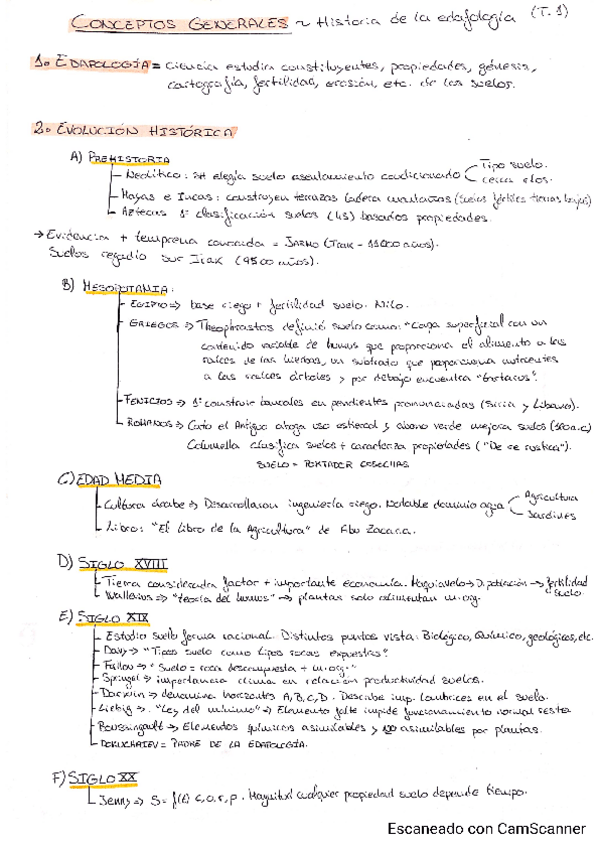 CONCEPTOS GENERALES ~ Historia de la edafología (T. 1)
1. EDAFOLOGÍA = Ciencia estudia constituyentes, propiedades, génesis,
cartografía, fertilidad, erosión, etc. de los suelos.
2. EVOLUCIÓN HISTÓRICA
A) PREHISTORIA
- Neolítico: elegía suelo asentamiento condicionado Tipo suelo.
cerca ríos.
- Mayas e Incas: construyen terrazas ladera montañas (suelos fértiles tierras bajas)
- Aztecas 1ª clasificación suelos (45) basados propiedades.
→ Evidencia + temprana conocida = JARMO (Irak - 11000 años).
Suelos regadío sur Irak (9500 años).
B) MESOPOTAMIA:
- EGIPTO ⇒ base riego + fertilidad suelo. Nilo.
- GRIEGOS ⇒ Theophrastos definió suelo como: "Capa superficial con un
contenido variable de humus que proporciona el alimento a las
raíces de las hierbas, un substrato que proporciona nutrientes
a las raíces árboles y por debajo encuentra "tártaros".
- FENICIOS ⇒ 1º construir bancales en pendientes pronunciadas (Siria y Líbano).
- ROMANOS ⇒ Cato el Antiguo aboga uso estiércol y abono verde mejora suelos
Columella clasifica suelos + caracteriza propiedades ("De re rustica").
SUELO = PORTADOR COSECHAS
C) EDAD MEDIA
- Cultura árabe ⇒ Desarrollaron ingeniería riego. Notable dominio agua Agricultura
Jardines
- Libro: "El Libro de la Agricultura" de Abu Zacaria.
D) SIGLO XVIII
- Tierra considerada factor + importante economía. Maquiavelo → D. población → fertilidad
suelo.
- Wallerius ⇒ "teoría del humus" → plantas solo alimentan m.org.
E) SIGLO XIX
- Estudio suelo forma racional. Distintos puntos vista: Biológico, químico, geológicos, etc.
- Davy ⇒ "Tipos suelo como tipos rocas expuestas".
- Fallou ⇒ "Suelo = roca descompuesta + m.org."
- Sprengel ⇒ importancia clima en relación productividad suelos.
- Darwin ⇒ denomina horizontes A, B, C, D. Describe imp. lombrices en el suelo.
- Liebig ⇒ "Ley del mínimo" ⇒ Elemento falte impide funcionamiento normal resto.
- Boussingault ⇒ Elementos químicos asimilables y no asimilables por plantas.
- DOKUCHAIEV = PADRE DE LA EDAFOLOGÍA.
F) SIGLO XX
- Jenny ⇒ S = f(t) c, o, r, p. Magnitud cualquier propiedad suelo depende tiempo.
Escaneado con CamScanner